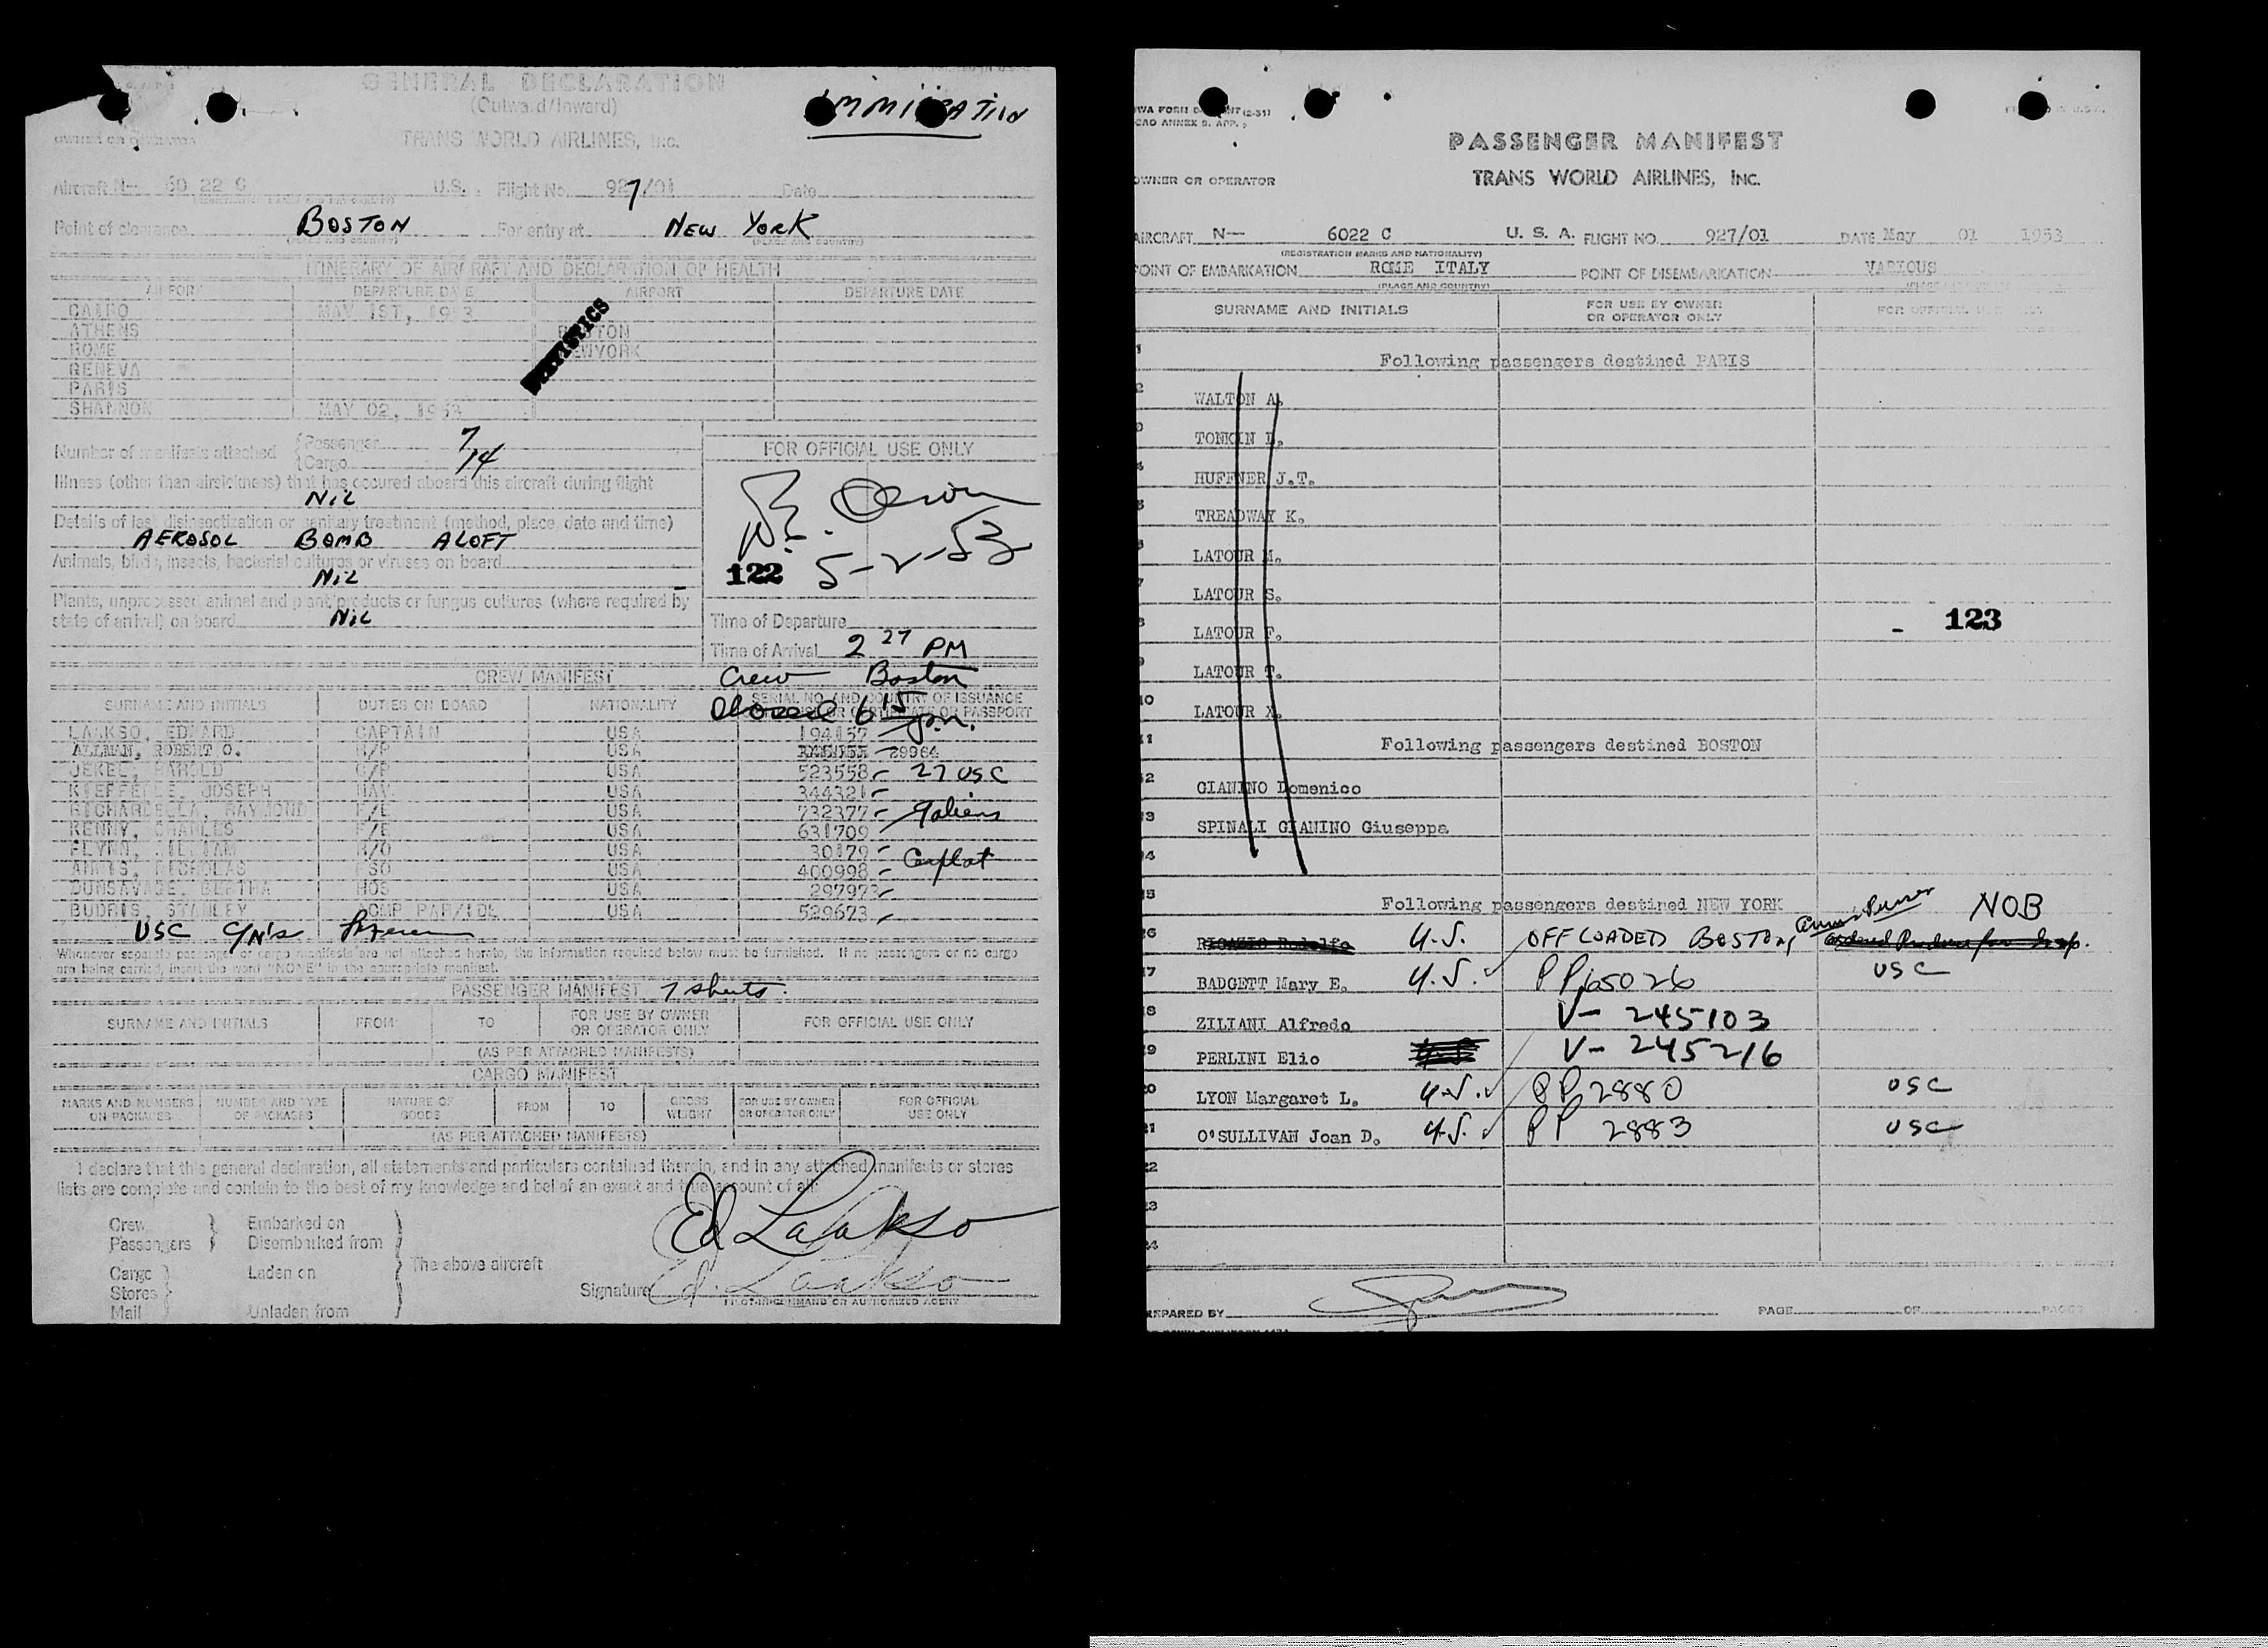 GENERAL DECLARATION
(Outward/Inward)
IMMIGRATION
OWNER OR OPERATOR TRANS WORLD AIRLINES, Inc.
Aircraft N- 60 22 C U.S. Flight No. 927/01 Date
7
Point of clearance BOSTON For entry at NEW YORK
(PLACE AND COUNTRY) (PLACE AND COUNTRY)
ITINERARY OF AIRCRAFT AND DECLARATION OF HEALTH
AIRPORT DEPARTURE DATE AIRPORT DEPARTURE DATE
CAIRO MAY 1ST, 1953
ATHENS BOSTON
ROME NEWYORK
GENEVA
PARIS
SHANNON MAY 02, 1953
STATISTICS
Number of manifests attached { Passenger 7
{ Cargo 14
FOR OFFICIAL USE ONLY
Illness (other than airsickness) that has occured aboard this aircraft during flight
NIL
Details of last disinsectization or sanitary treatment (method, place, date and time)
AEROSOL BOMB ALOFT
Animals, birds, insects, bacterial cultures or viruses on board
NIL
122 5-2-53
Plants, unprocessed animal and plant products or fungus cultures (where required by
state of arrival) on board NIL
Time of Departure
Time of Arrival 2 27 PM
CREW MANIFEST Crew Boston
SURNAME AND INITIALS DUTIES ON BOARD NATIONALITY SERIAL NO. AND COUNTRY OF ISSUANCE
OR CERTIFICATE OR PASSPORT
6 15 p.m.
LAAKSO, EDWARD CAPTAIN USA 194157
ALLMAN, ROBERT O. USA 29964
JEKEL, HAROLD USA 523558 27 USC
KIEFFERLE, JOSEPH NAV USA 344321
RICHARDELLA, RAYMOND F/E USA 732377 9 aliens
KENNY, CHARLES F/E USA 631709
FLYNN, WILLIAM R/O USA 30179
ANNIS, NICHOLAS FSO USA 400998
DUNSAVAGE, BERTHA HOS USA 297973
BUDRIS, STANLEY USA 529673
USC
Whenever separate passenger or cargo manifests are not attached hereto, the information required below must be furnished. If no passengers or no cargo
are being carried, insert the word "NONE" in the appropriate manifest.
PASSENGER MANIFEST 7 sheets.
SURNAME AND INITIALS FROM TO FOR USE BY OWNER OR OPERATOR ONLY FOR OFFICIAL USE ONLY
(AS PER ATTACHED MANIFESTS)
CARGO MANIFEST
MARKS AND NUMBERS ON PACKAGES NUMBER AND TYPE OF PACKAGES NATURE OF GOODS FROM TO GROSS WEIGHT FOR USE BY OWNER OR OPERATOR ONLY FOR OFFICIAL USE ONLY
(AS PER ATTACHED MANIFESTS)
I declare that this general declaration, all statements and particulars contained therein, and in any attached manifests or stores
lists are complete and contain to the best of my knowledge and belief an exact and true account of all
Crew } Embarked on
Passengers } Disembarked from
The above aircraft
Cargo } Laden on
Stores
Mail } Unladen from
Ed Laakso
Signature Ed. Laakso
PILOT-IN-COMMAND OR AUTHORIZED AGENT
PASSENGER MANIFEST
OWNER OR OPERATOR TRANS WORLD AIRLINES, Inc.
AIRCRAFT N- 6022 C U. S. A. FLIGHT NO. 927/01 DATE May 01 1953
(REGISTRATION MARKS AND NATIONALITY)
POINT OF EMBARKATION ROME ITALY POINT OF DISEMBARKATION VARIOUS
(PLACE AND COUNTRY)
SURNAME AND INITIALS FOR USE BY OWNER OR OPERATOR ONLY
Following passengers destined PARIS
WALTON A.
TONKIN D.
HUFFNER J.T.
TREADWAY K.
LATOUR M.
LATOUR S.
123
LATOUR F.
LATOUR T.
LATOUR X.
Following passengers destined BOSTON
GIANINO Domenico
SPINALI GIANINO Giuseppa
Following passengers destined NEW YORK
NOB
U.S. OFF LOADED BOSTON,
BADGETT Mary E. U.S. PP 65026 USC
ZILIANI Alfredo V- 245103
PERLINI Elio V- 245216
LYON Margaret L. U.S. PP 2880 USC
O'SULLIVAN Joan D. U.S. PP 2883 USC
22
23
24
PREPARED BY PAGE OF PAGES